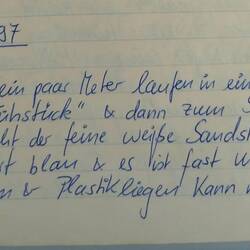 97
ein paar Meter laufen in ein
ühstück" & dann zum S
ht der feine weiße Sandst
st blau & es ist fast w
n & Plastikliegen kann m